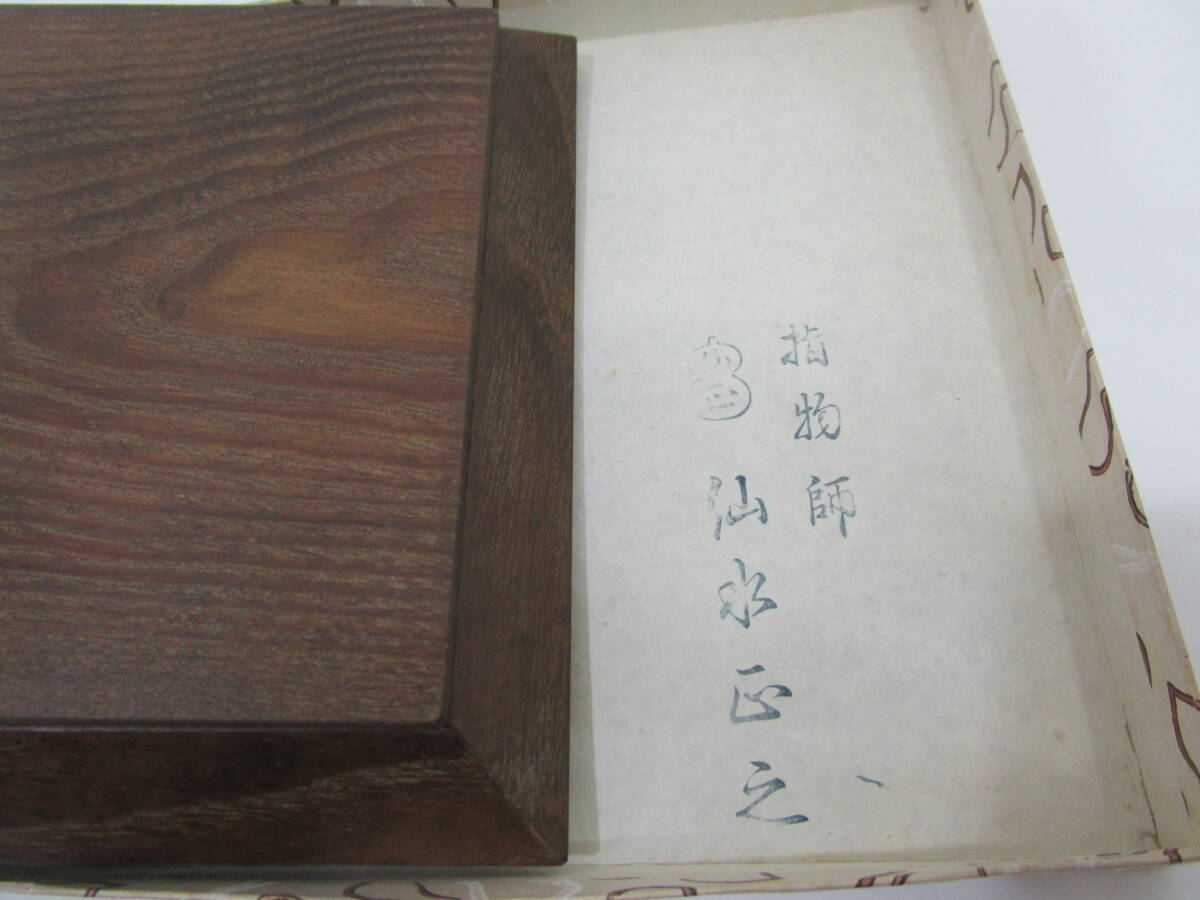 指物師
仙水正之